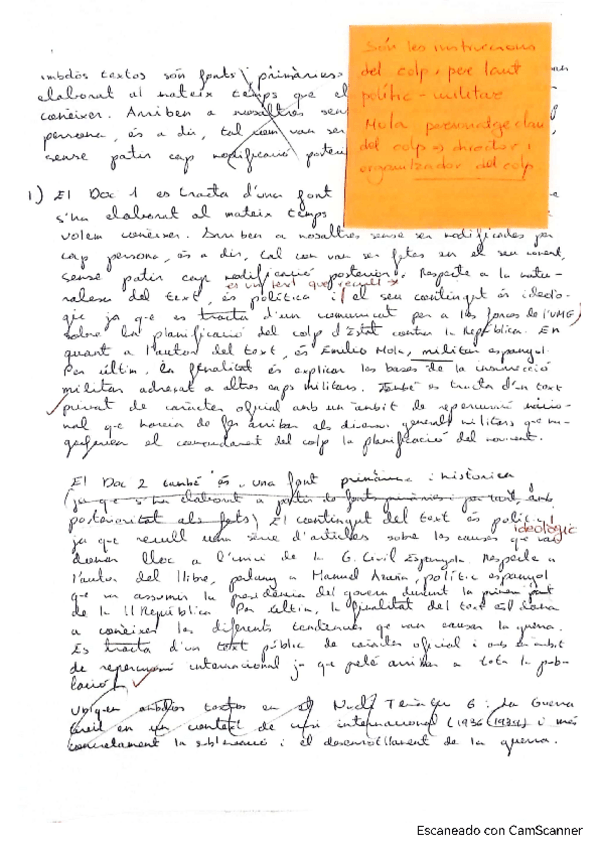 Són les instruccions
del colp, per tant
polític-militar
Mola personatge clau
del colp → director i
organitzador del colp
ambdós textos són fonts primàries
elaborat al mateix temps que el
conèixer. Arriben a nosaltres sen
persona, és a dir, tal com van ser
sense patir cap modificació posteri
1) El Doc 1 es tracta d'una font
s'ha elaborat al mateix temps
volem conèixer. Arriben a nosaltres sense ser modificades per
cap persona, és a dir, tal com van ser fetes en el seu moment,
sense patir cap modificació posterior. Respecte a la natu-
és un text que recull →
ralesa del text, és política i el seu contingut és ideolò-
gic ja que es tracta d'un comunicat per a les forces de l'UME
sobre la planificació del colp d'Estat contra la República. En
quant a l'autor del text, és Emilio Mola, militar espanyol.
Per últim, la finalitat és explicar les bases de la insurrecció
militar adreçat a altres caps militars. També es tracta d'un text
privat de caràcter oficial amb un àmbit de repercussió nacio-
nal que havia de fer arribar als diversos generals militars que
el comandament del colp la planificació del moment.
El Doc 2 també és una font primària i històrica
(ja que s'ha elaborat a partir de fonts primàries i per tant, amb
posterioritat als fets) El contingut del text és polític i
ideològic
ja que recull una sèrie d'articles sobre les causes que van
donar lloc a l'inici de la G. Civil Espanyola. Respecte a
l'autor del llibre, Manuel Azaña, polític espanyol
que va assumir la presidència del govern durant la primera part
de la II República. Per últim, la finalitat del text és donar
a conèixer les diferents tendències que van causar la guerra.
Es tracta d'un text públic de caràcter oficial i amb àmbit
de repercussió internacional ja que pot arribar a tota la pob-
lació.
Ubiquem ambdós textos en el Nucli Temàtic 6: La Guerra
Civil en un context de crisi internacional (1936-1939) i més
concretament la sublevació i el desenvolupament de la guerra.
Escaneado con CamScanner